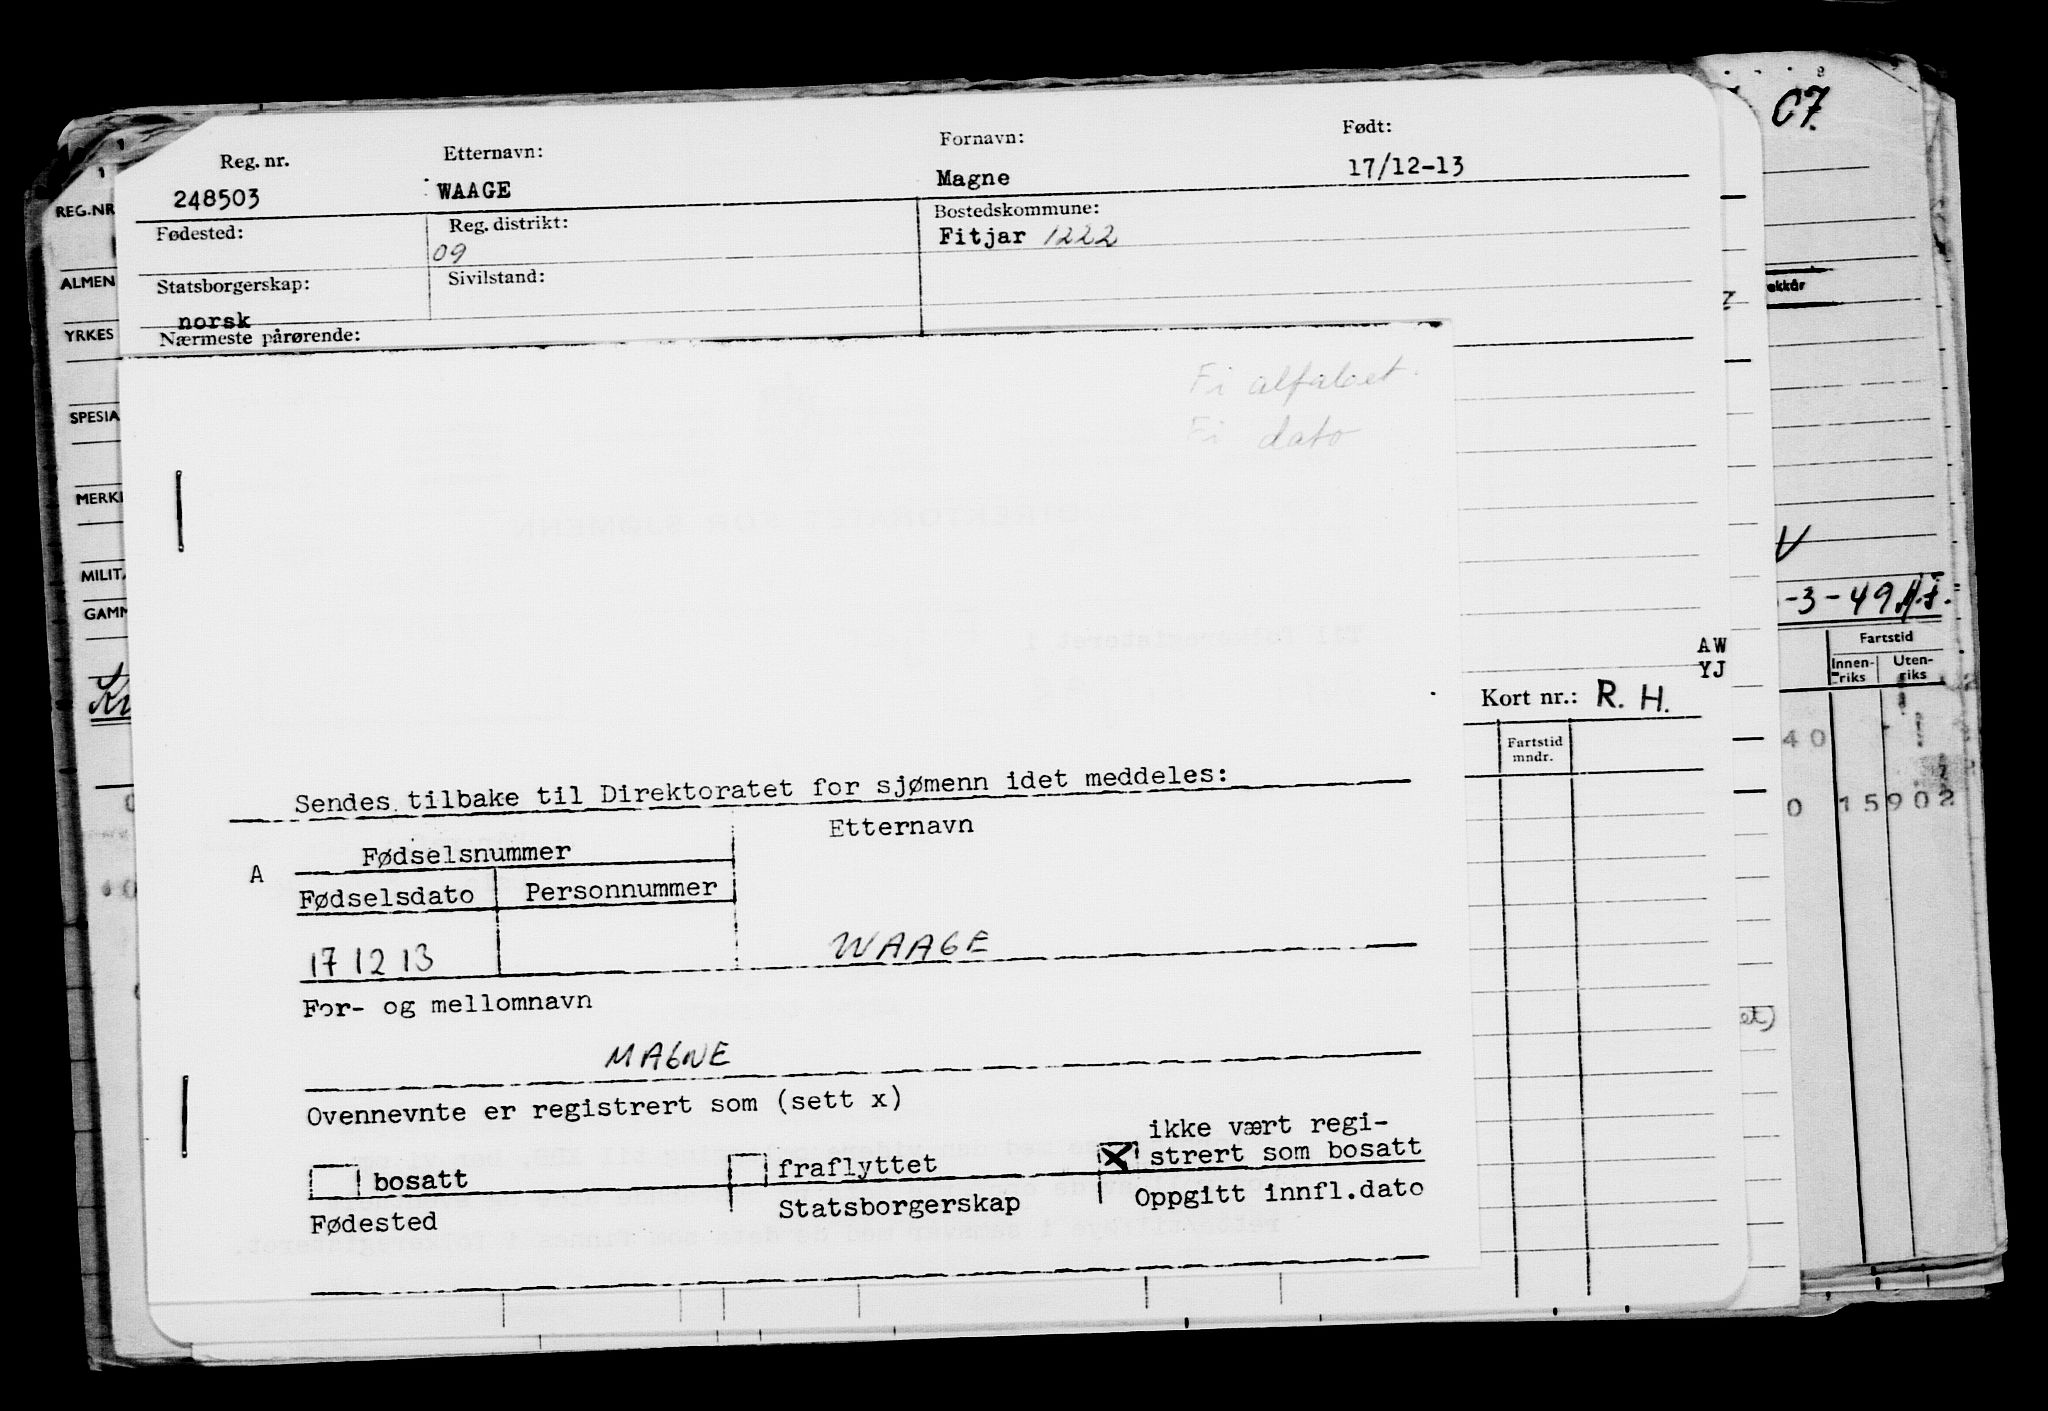 07.
Reg. nr. Etternavn: Fornavn: Født:
248503 WAAGE Magne 17/12-13
REG.NR
Fødested: Reg. distrikt: Bostedskommune:
09 Fitjar 1222
ALMEN Statsborgerskap: Sivilstand:
norsk
YRKES Nærmeste pårørende:
ekkår
Ei alfabet.
Ei dato
SPESIA
MERKE
MILITÆ
GAMM
-3-49
Fartstid
Innen-riks Uten-riks
AW
YJ
Kort nr.: R. H.
Fartstid
mndr.
40
0 15902
Sendes tilbake til Direktoratet for sjømenn idet meddeles:
Etternavn
A Fødselsnummer
Fødselsdato Personnummer
17 12 13 WAAGE
For- og mellomnavn
MAGNE
et)
Ovennevnte er registrert som (sett x)
ikke vært regi-
bosatt fraflyttet X strert som bosatt
Fødested Statsborgerskap Oppgitt innfl.dato